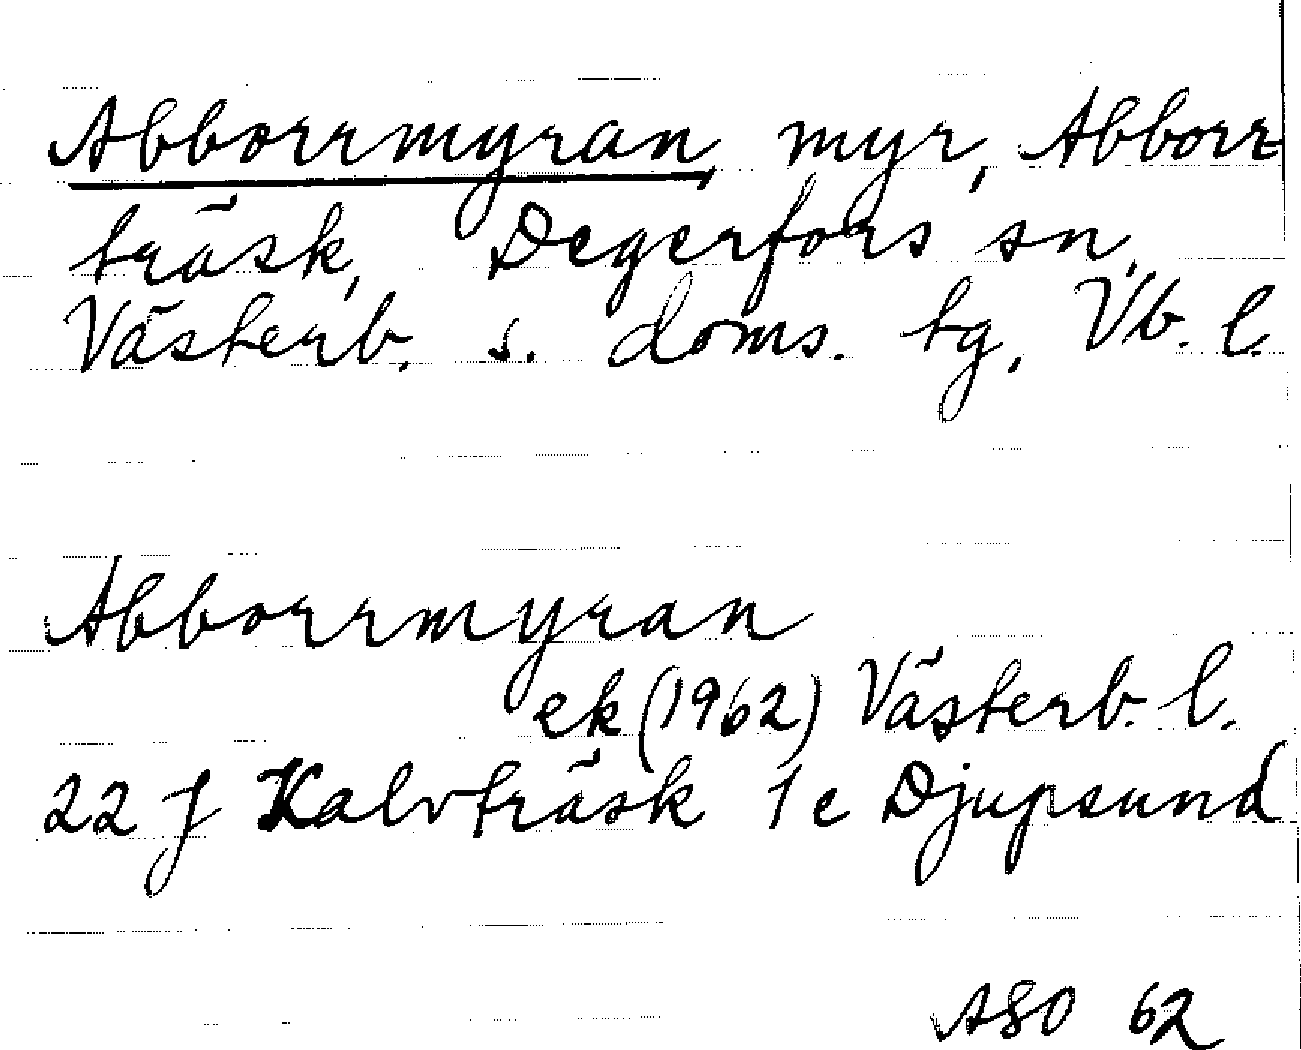 Abborrmyran, myr, Abborr-
träsk, Degerfors sn,
Västerb. s. doms. tg, Vb. l.
Abborrmyran
ek (1962) Västerb. l.
22 J Kalvträsk 1 e Djupsund
ASO 62